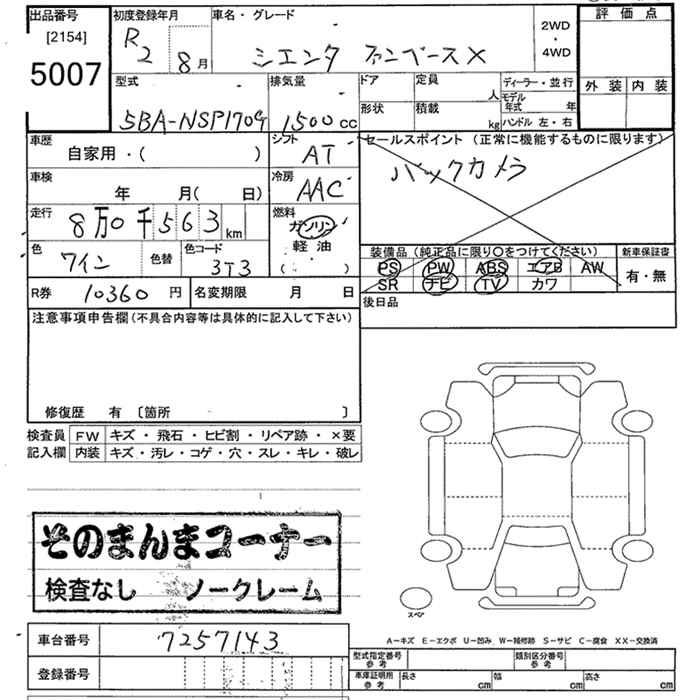 出品番号
[2154]
5007
初度登録年月
R2 8月
車名・グレード
シエンタ ファンベースX
2WD
・
4WD
評価点
外装 内装
型式
5BA-NSP170G
排気量
1500cc
ドア
形状
定員
人
積載
kg
ディーラー・並行
モデル年式 年
ハンドル 左・右
車歴
自家用・( )
シフト
AT
車検
年 月( 日)
冷房
AAC
走行
8万0千563km
燃料
ガソリン
軽油
( ・ )
色
ワイン
色替
色コード
3T3
R券 10360円
名変期限 月 日
セールスポイント (正常に機能するものに限ります)
バックカメラ
装備品 (純正品に限り〇をつけてください)
PS PW ABS エアB AW
SR ナビ TV カワ
新車保証書
有・無
後日品
注意事項申告欄 (不具合内容等は具体的に記入して下さい)
修復歴 有 〔箇所 〕
検査員記入欄
FW キズ・飛石・ヒビ割・リペア跡・×要
内装 キズ・汚レ・コゲ・穴・スレ・キレ・破レ
そのまんまコーナー
検査なし ノークレーム
スペア
車台番号 7257143
登録番号
A-キズ E-エクボ U-凹み W-補修跡 S-サビ C-腐食 XX-交換済
型式指定番号 参考
類別区分番号 参考
車庫証明所 参考
長さ cm 幅 cm 高さ cm